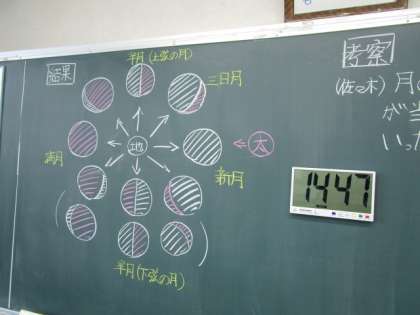 結果
半月(上弦の月)
三日月
地
太
満月
新月
半月(下弦の月)
考察
(佐々木) 月の
が当
いっ
14:47